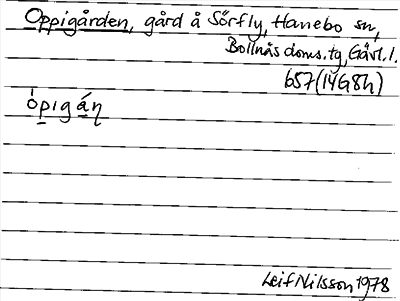 Oppigården, gård å Sörfly, Hanebo sn,
Bollnäs doms.tg, Gävl. l.
657 (14G8h)
ópigáη
Leif Nilsson 1978